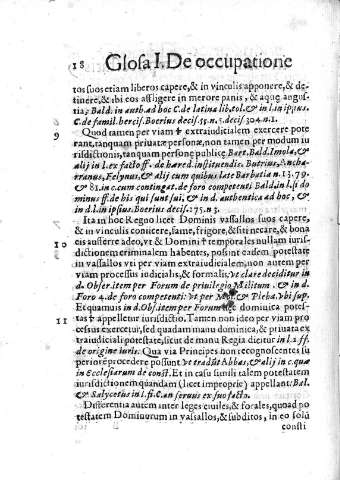 18 Glosa I. De occupatione
tos suos etiam liberos capere, & in vinculis apponere, & de-
tinere, & ibi eos affligere in morere panis, & aquę angus-
tia, Bald. in auth. ad hoc C. de latina lib. tol. & in l. in ipsius.
C. de famil. hercis. Boerius decis. 55. n. 5. decis. 304. n. 1.
9 Quod tamen per viam † extrajudicialem exercere pote
rant, tanquam privatæ personæ, non tamen per modum iu
risdictionis, tanquam personę publicę, Bart. Bald. Imola, &
alij in l. ex facto ff. de hæred. instituendis. Butrius, Ancha-
ranus, Felynus, & alij cum quibus late Barbatia n. 13. 79.
& 81. in c. cum contingat. de foro competenti Bald. in l. si do
minus ff. de his qui sunt sui, & in d. authentica ad hoc, &
in d. l. in ipsius. Boerius decis. 275. n. 3.
Ita in hoc Regno licet Dominis vassallos suos capere,
& in vinculis conjicere, fame, frigore, & siti necare, & bona
10 eis auferre adeo, vt & Domini † temporales nullam iuris-
dictionem criminalem habentes, possint eadem potestate
in vassallos vti per viam extraiudicialem, non autem per
viam processus iudicialis, & formalis, vt clare deciditur in
d. Obser. item per Forum de privilegio Militum. & in d.
Foro 4. de foro competenti: vt per Mol. & Pleba. vbi sup.
Et quamuis in d. Obser. item per Forum hæc dominica potes-
11 tas † appelletur iurisdictio. Tamen non ideo per viam pro
cessus exercetur, sed quadam manu dominica, & privata ex
traiudiciali potestate, sicut de manu Regia dicitur in l. 2. ff.
de origine iuris. Qua via Principes non recognoscentes su
periorẽ procedere possunt vt tradit Abbas, & alij in c. quæ
in Ecclesiarum de const. Et in casu simili talem potestatem
iurisdictionem quandam (licet improprie) appellant Bal.
& Salycetus in l. fi. C. an servus ex suo facto.
Differentia autem inter leges civiles, & forales, quoad po
testatem Dominorum in vasallos, & subditos, in eo solũ
consti